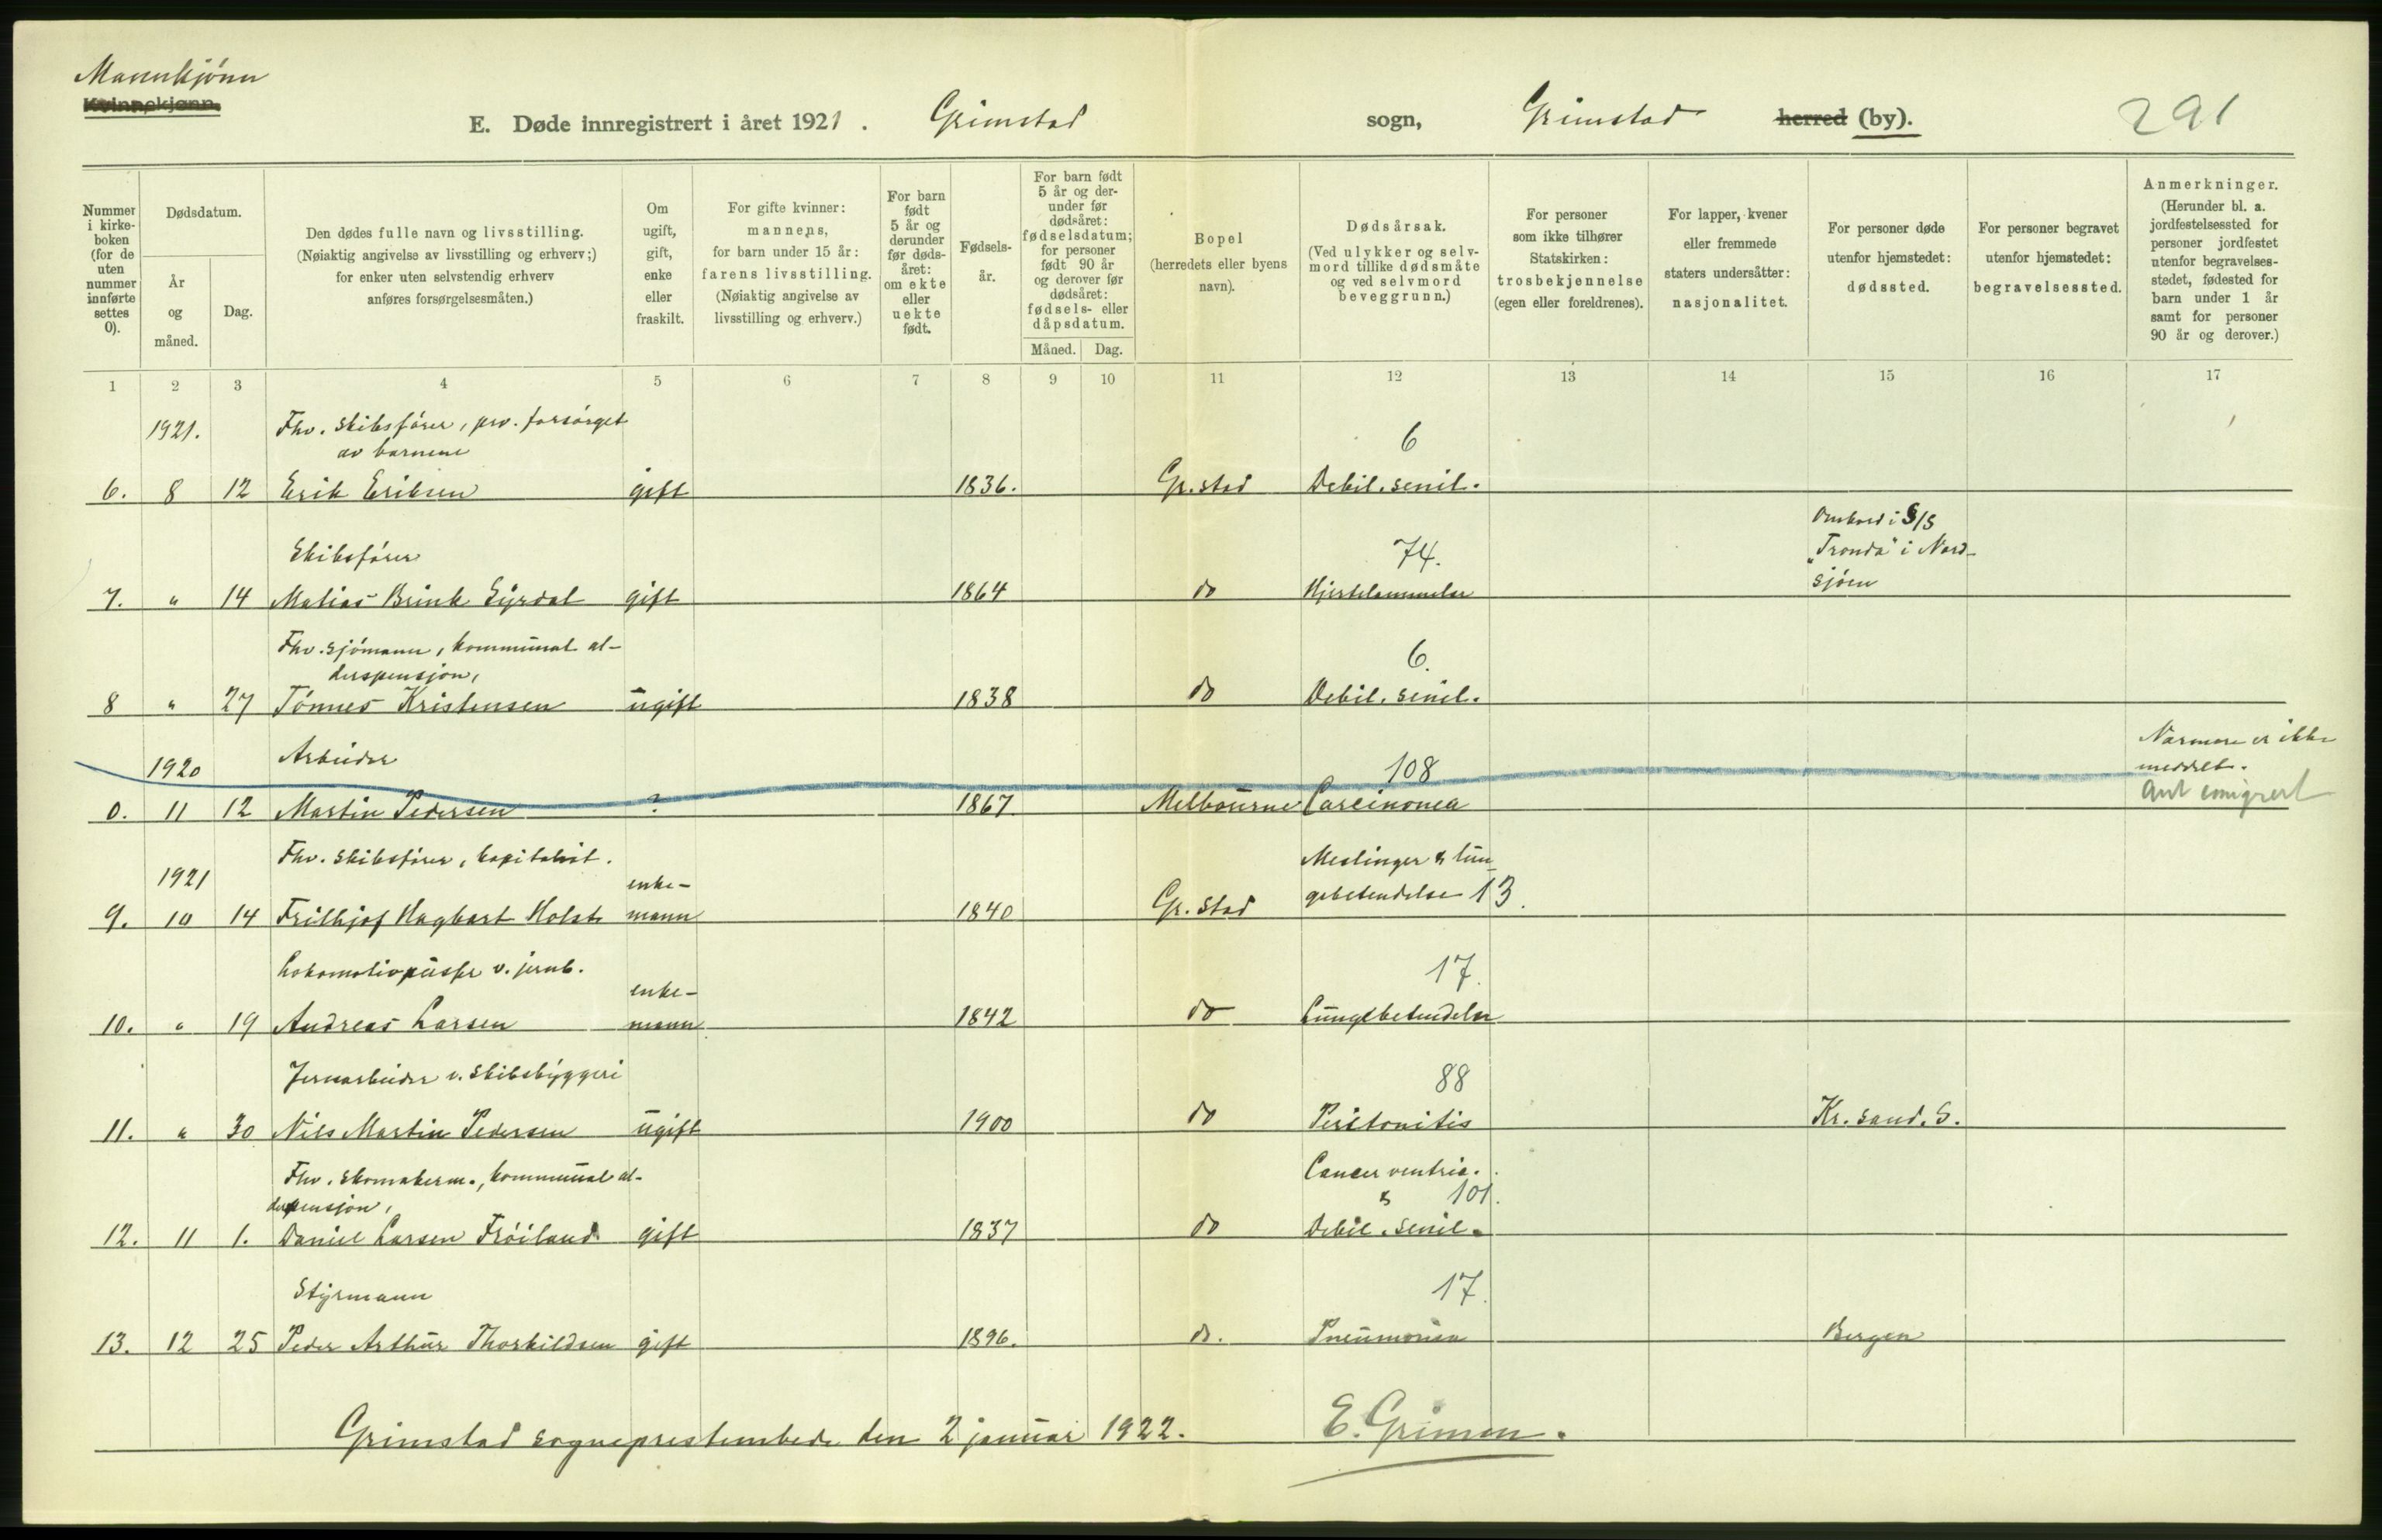 Mannkjönn
Kvinnekjønn.
E. Døde innregistrert i året 1921. Grimstad sogn, Grimstad herred (by). 291
Nummer i kirkeboken (for de uten nummer innførte settes 0).
Dødsdatum.
År og måned.
Dag.
Den dødes fulle navn og livsstilling.
(Nøiaktig angivelse av livsstilling og erhverv;)
for enker uten selvstendig erhverv
anføres forsørgelsesmåten.)
Om ugift, gift, enke eller fraskilt.
For gifte kvinner:
mannens,
for barn under 15 år:
farens livsstilling.
(Nøiaktig angivelse av
livsstilling og erhverv.)
For barn født 5 år og derunder før dødsåret: om ekte eller uekte født.
Fødselsår.
For barn født 5 år og derunder før dødsåret: fødselsdatum; for personer født 90 år og derover før dødsåret: fødsels- eller dåpsdatum.
Måned. Dag.
Bopel
(herredets eller byens
navn).
Dødsårsak.
(Ved ulykker og selvmord tillike dødsmåte og ved selvmord beveggrunn.)
For personer
som ikke tilhører
Statskirken:
trosbekjennelse
(egen eller foreldrenes).
For lapper, kvener
eller fremmede
staters undersåtter:
nasjonalitet.
For personer døde
utenfor hjemstedet:
dødssted.
For personer begravet
utenfor hjemstedet:
begravelsessted.
Anmerkninger.
(Herunder bl. a.
jordfestelsessted for
personer jordfestet
utenfor begravelses-
stedet, fødested for
barn under 1 år
samt for personer
90 år og derover.)
1 2 3 4 5 6 7 8 9 10 11 12 13 14 15 16 17
1921. Fhv. skibsfører, prv. forsörget
av barnene 6
6. 8 12 Erik Eriksen gift 1836. Gr.stad Debil. senil.
Ombord i S/S
Skibsfører 74. "Tronda" i Nord-
sjöen
7. " 14 Matias Brink Eyrdal gift 1864 do Hjertelammelse
Fhv. sjömann, kommunal al-
derspensjon, 6.
8 " 27 Tönnes Kristensen ugift 1838 do Debil. senil.
1920 Arbeider 108 Nærmere er ikke
meddelt.
0. 11 12 Martin Pedersen ? 1867. Melbourne Carcinoma Ant emigrert
1921 Fhv. skibsfører, kapitalist. Meslinger & lun-
enke- gebetendelse 13.
9. 10 14 Frithjof Hagbart Holst mann 1840 Gr. stad
Lokomotivpusser v. jernb. 17.
enke-
10. " 19 Andreas Larsen mann 1842 do Lungebetendelse
Jernarbeider v. skibsbyggeri 88
11. " 30 Nils Martin Pedersen ugift 1900 do Peritonitis Kr. sand. S.
Fhv. skomakerm., kommunal al- Cancer ventric.
derspensjon, & 101.
12. 11 1. Daniel Larsen Fröiland gift 1837 do Debil. senil.
Styrmann 17.
13. 12 25 Peder Arthur Thorkildsen gift 1896. do. Pneumonia Bergen
Grimstad sogneprestembede den 2 januar 1922. E. Grimen.